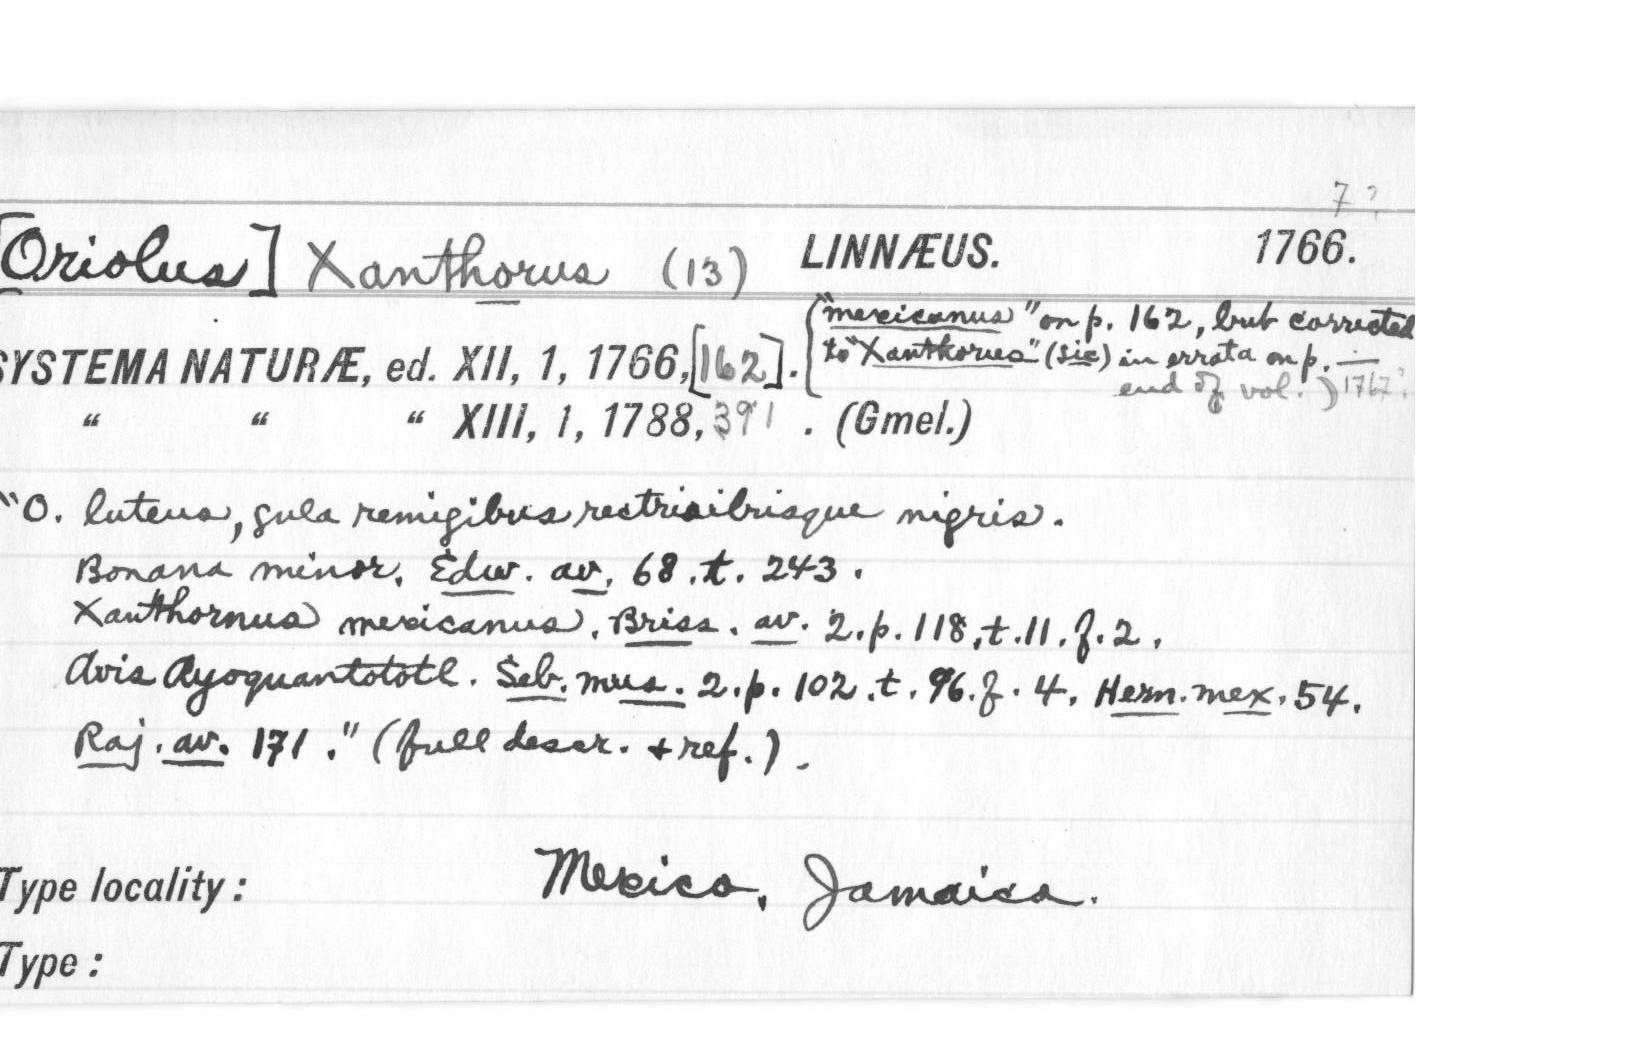 7?
[Oriolus] Xanthorus (13) LINNÆUS. 1766.
("mexicanus" on p. 162, but corrected
to "Xanthorus" (sic) in errata on p. —
end of vol.) 1767?
SYSTEMA NATURÆ, ed. XII, 1, 1766, [162].
“ “ “ XIII, 1, 1788, 391. (Gmel.)
"O. luteus, gula remigibus rectricibusque nigris.
Bonana minor. Edw. av. 68. t. 243.
Xanthornus mexicanus. Briss. av. 2. p. 118, t. 11. f. 2.
Avis Ayoquantototl. Seb. mus. 2. p. 102. t. 96. f. 4. Hern. mex. 54.
Raj. av. 171." (full descr. + ref.).
Type locality: Mexico, Jamaica.
Type: